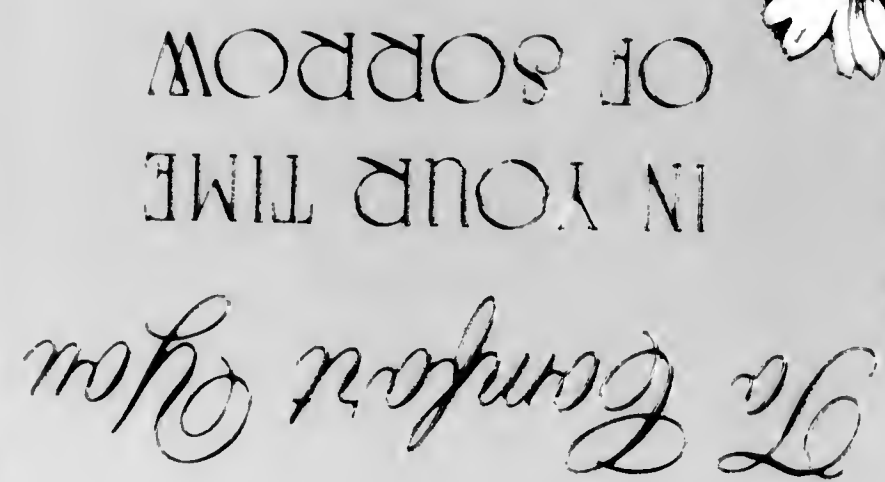 To Comfort You
IN YOUR TIME
OF SORROW